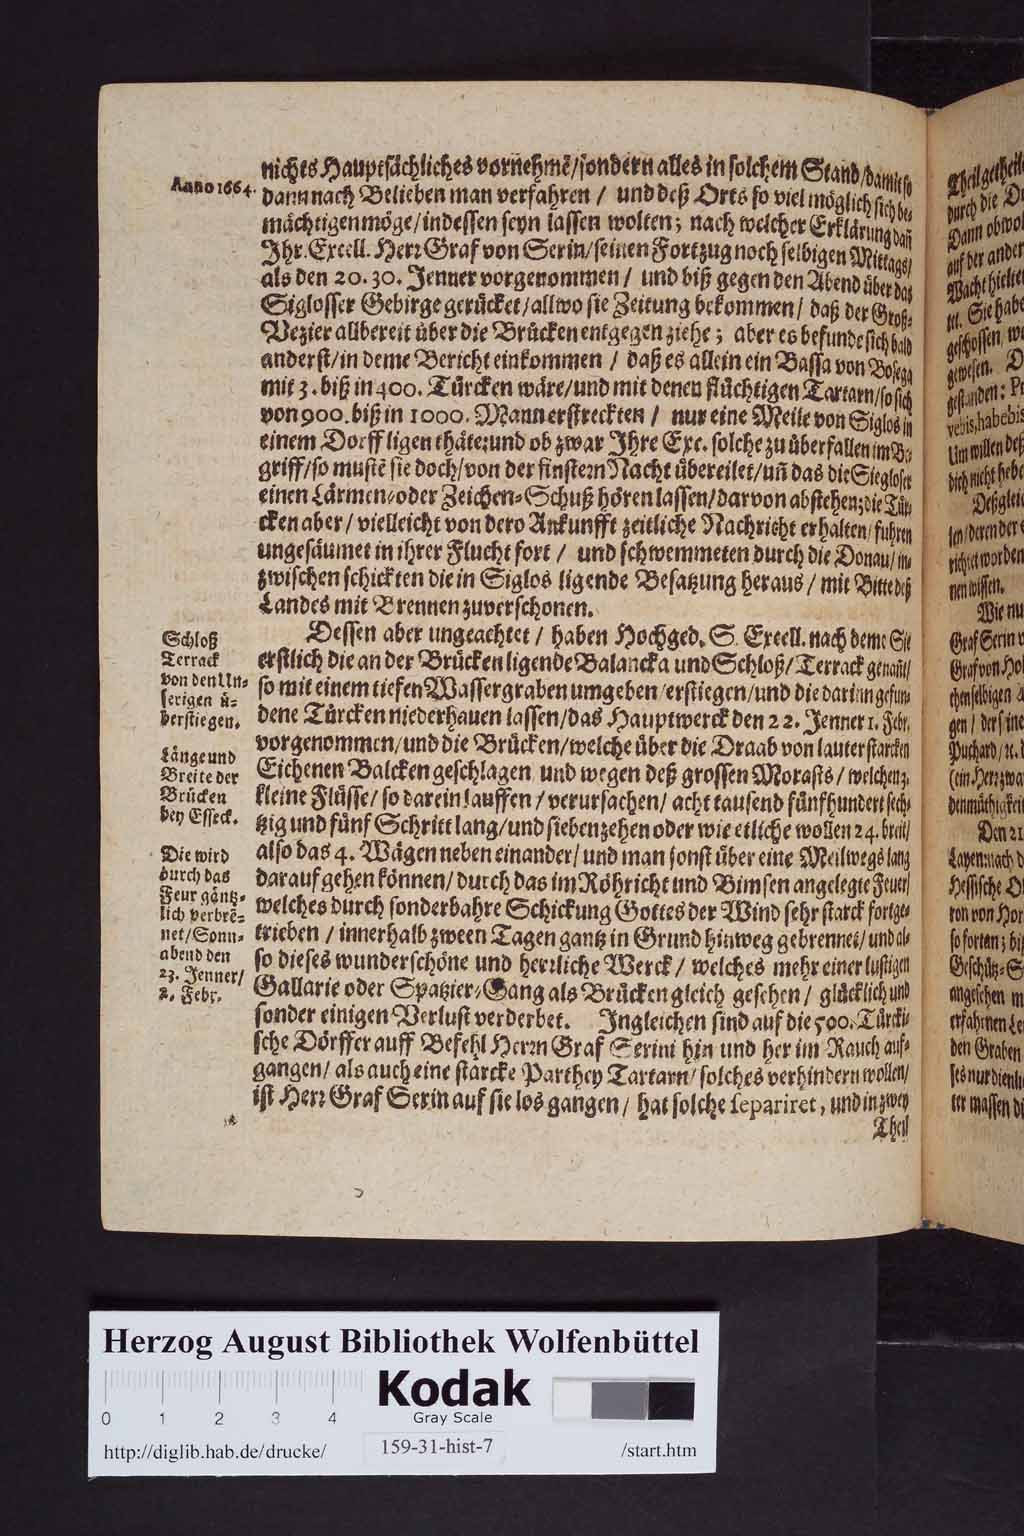 Anno 1664.
nichts Hauptsächliches vorneh̄mē/sondern alles in solchem Stand/damit so
dann nach Belieben man verfahren / und deß Orts so viel möglich sich be-
mächtigen möge/indessen seyn lassen wolten; nach welcher Erklärung dañ
Ihr. Excell. Herr Graf von Serin/seinen Fortzug noch selbigen Mittags/
als den 20. 30. Jenner vorgenommen / und biß gegen den Abend über das
Siglosser Gebirge gerücket/allwo sie Zeitung bekommen / daß der Groß-
Vezier allbereit über die Brücken entgegen ziehe; aber es befunde sich bald
anderst/in deme Bericht einkommen / daß es allein ein Bassa von Bosega
mit 3. biß in 400. Türcken wäre/und mit denen flüchtigen Tartarn/so sich
von 900. biß in 1000. Mann erstreckten / nur eine Meile von Siglos in
einem Dorff ligen thäte; und ob zwar Ihre Exc. solche zu überfallen im Be-
griff/so mustē sie doch/von der finstern Nacht übereilet/uñ das die Siegloser
einen Lärmen- oder Zeichen-Schuß hören lassen/darvon abstehen; die Tür-
cken aber / vielleicht von dero Ankunfft zeitliche Nachricht erhalten/ fuhren
ungesäumet in ihrer Flucht fort / und schwemmeten durch die Donau/ in-
zwischen schickten die in Siglos ligende Besatzung heraus / mit Bitte deß
Landes mit Brennen zuverschonen.
Schloß
Terrack
von den Un-
serigen ü-
berstiegen.
Dessen aber ungeachtet / haben Hochged. S. Excell. nach deme Sie
erstlich die an der Brücken ligende Balancka und Schloß/ Terrack genañt/
so mit einem tiefen Wassergraben umgeben /erstiegen/und die darinn gefun-
dene Türcken niederhauen lassen/das Hauptwerck den 22. Jenner 1. Febr.
Länge und
Breite der
Brücken
bey Esseck.
vorgenommen/und die Brücken/welche über die Draab von lauter starcken
Eichenen Balcken geschlagen und wegen deß grossen Morasts / welchen 3.
kleine Flüsse/ so darein lauffen / verursachen / acht tausend fünfhundert sech-
tzig und fünf Schritt lang/und siebenzehen oder wie etliche wollen 24. breit/
Die wird
durch das
Feur gäntz-
lich verbrē-
net/Sonn-
abend den
23. Jenner/
2. Febr.
also das 4. Wägen neben einander/ und man sonst über eine Meilwegs lang
darauf gehen können/ durch das im Röhricht und Bimsen angelegte Feuer/
welches durch sonderbahre Schickung Gottes der Wind sehr starck fortge-
trieben / innerhalb zween Tagen gantz in Grund hinweg gebrennet/ und al-
so dieses wunderschöne und herrliche Werck / welches mehr einer lustigen
Gallarie oder Spatzier-Gang als Brücken gleich gesehen / glücklich und
sonder einigen Verlust verderbet. Ingleichen sind auf die 500. Türcki-
sche Dörffer auff Befehl Herrn Graf Serini hin und her im Rauch auf-
gangen/ als auch eine starcke Parthey Tartarn/ solches verhindern wollen/
ist Herr Graf Serin auf sie los gangen / hat solche separiret, und in zwey
Theil
Herzog August Bibliothek Wolfenbüttel
0 1 2 3 4
Kodak
Gray Scale
http://diglib.hab.de/drucke/
159-31-hist-7
/start.htm